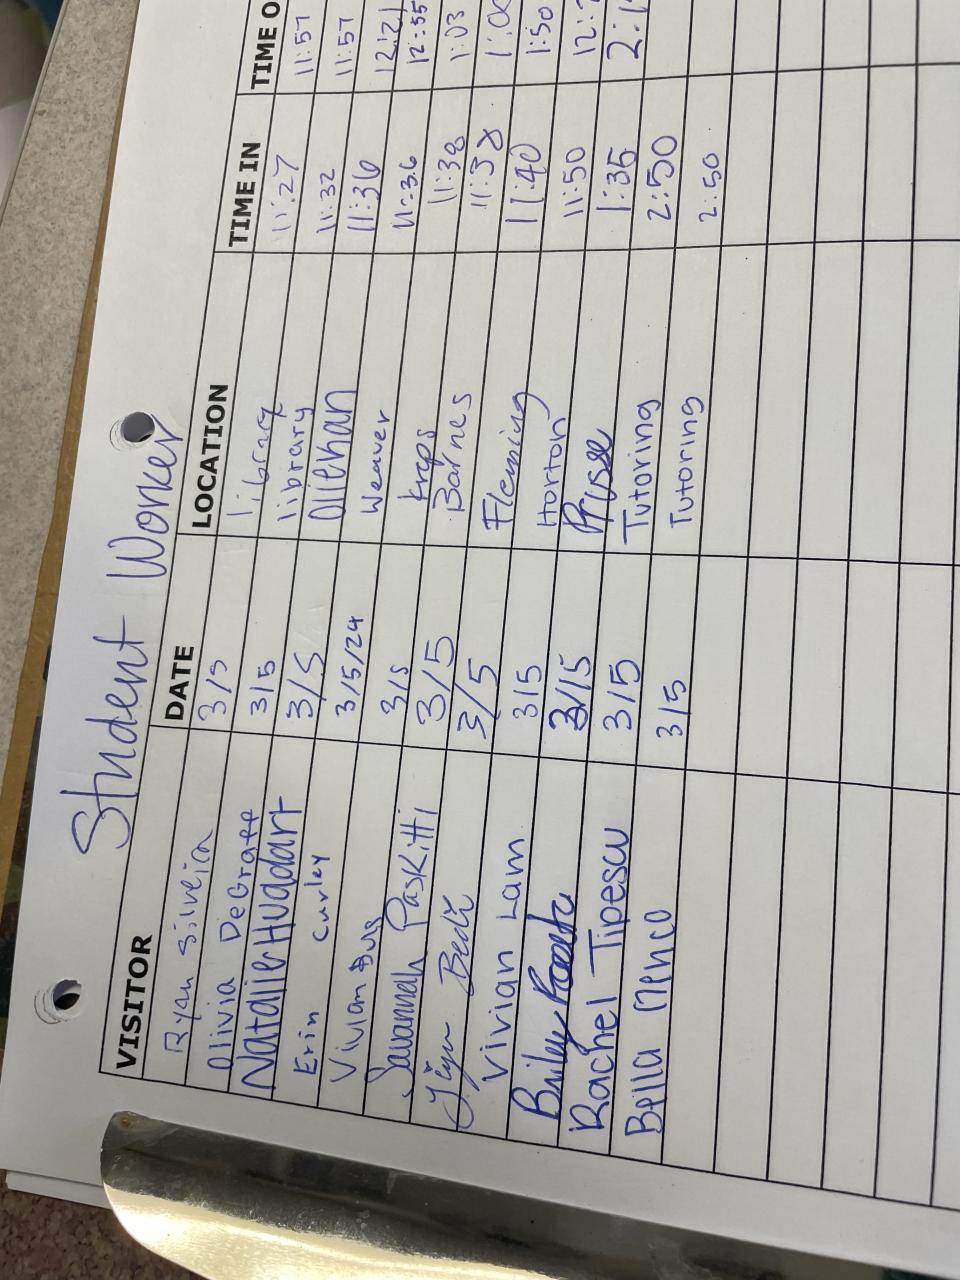 Student Worker
VISITOR DATE LOCATION TIME IN TIME O
Ryan Silveira 3/5 library 11:27 11:57
Olivia DeGraff 3/5 library 11:32 11:57
Natalie Huddart 3/5 Ollehan 11:36 12:21
Erin Curley 3/5/24 Weaver 11:36 12:55
Vivian 3/5 Kreps 11:38 1:03
Savannah Paskitti 3/5 Barnes 11:38
3/5 Fleming 11:40 1:50
Vivian Lam 3/5 Horton 11:50
Briley 3/5 Pruse 1:35
Rachel Tipescu 3/5 Tutoring 2:50
Bella Menco 3/5 Tutoring 2:50